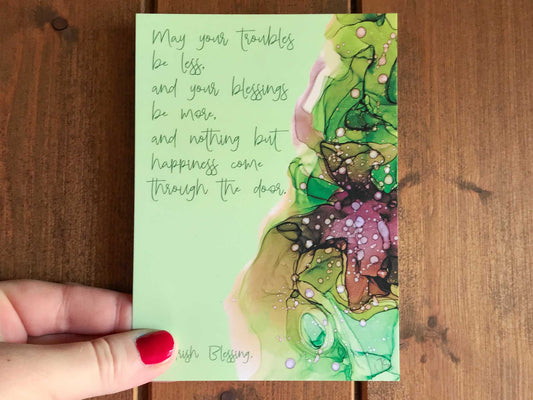 May your troubles
be less,
and your blessings
be more,
and nothing but
happiness come
through the door.
Blessing.